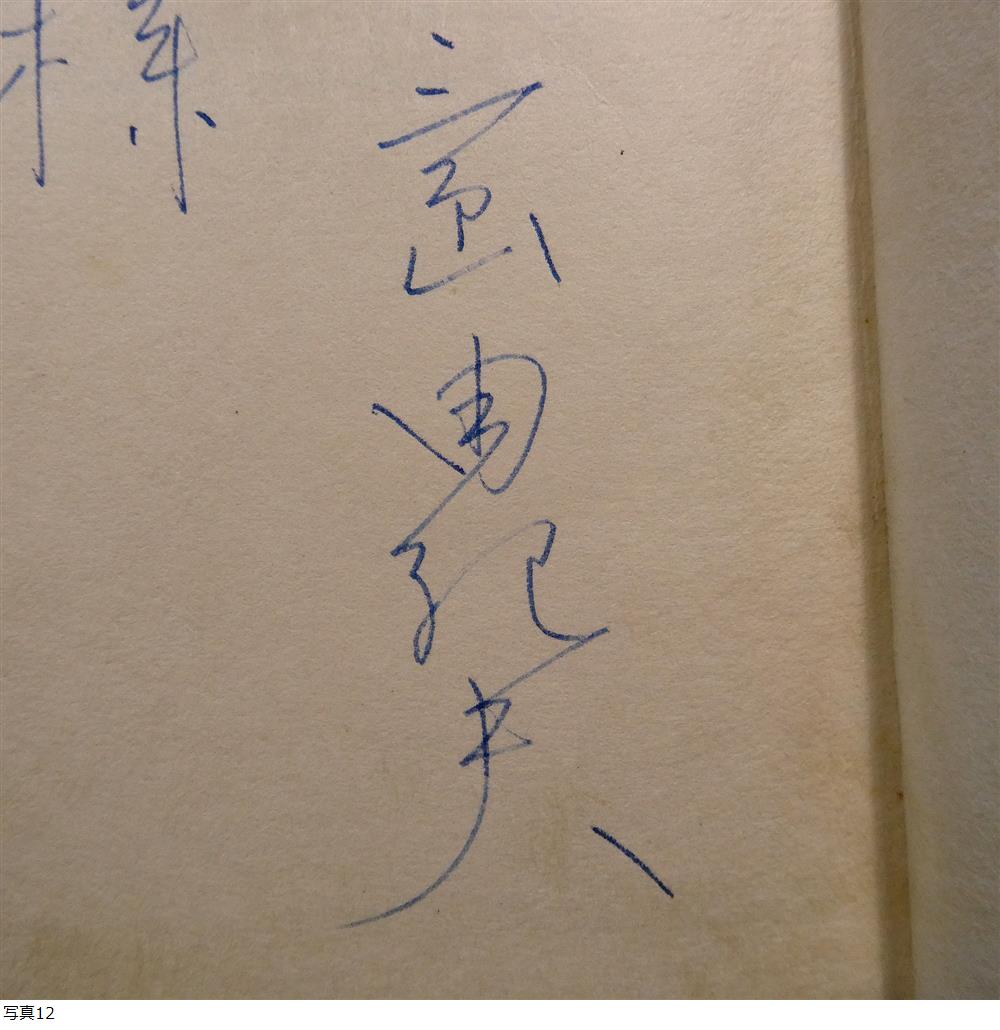 三島由紀夫
様
写真12